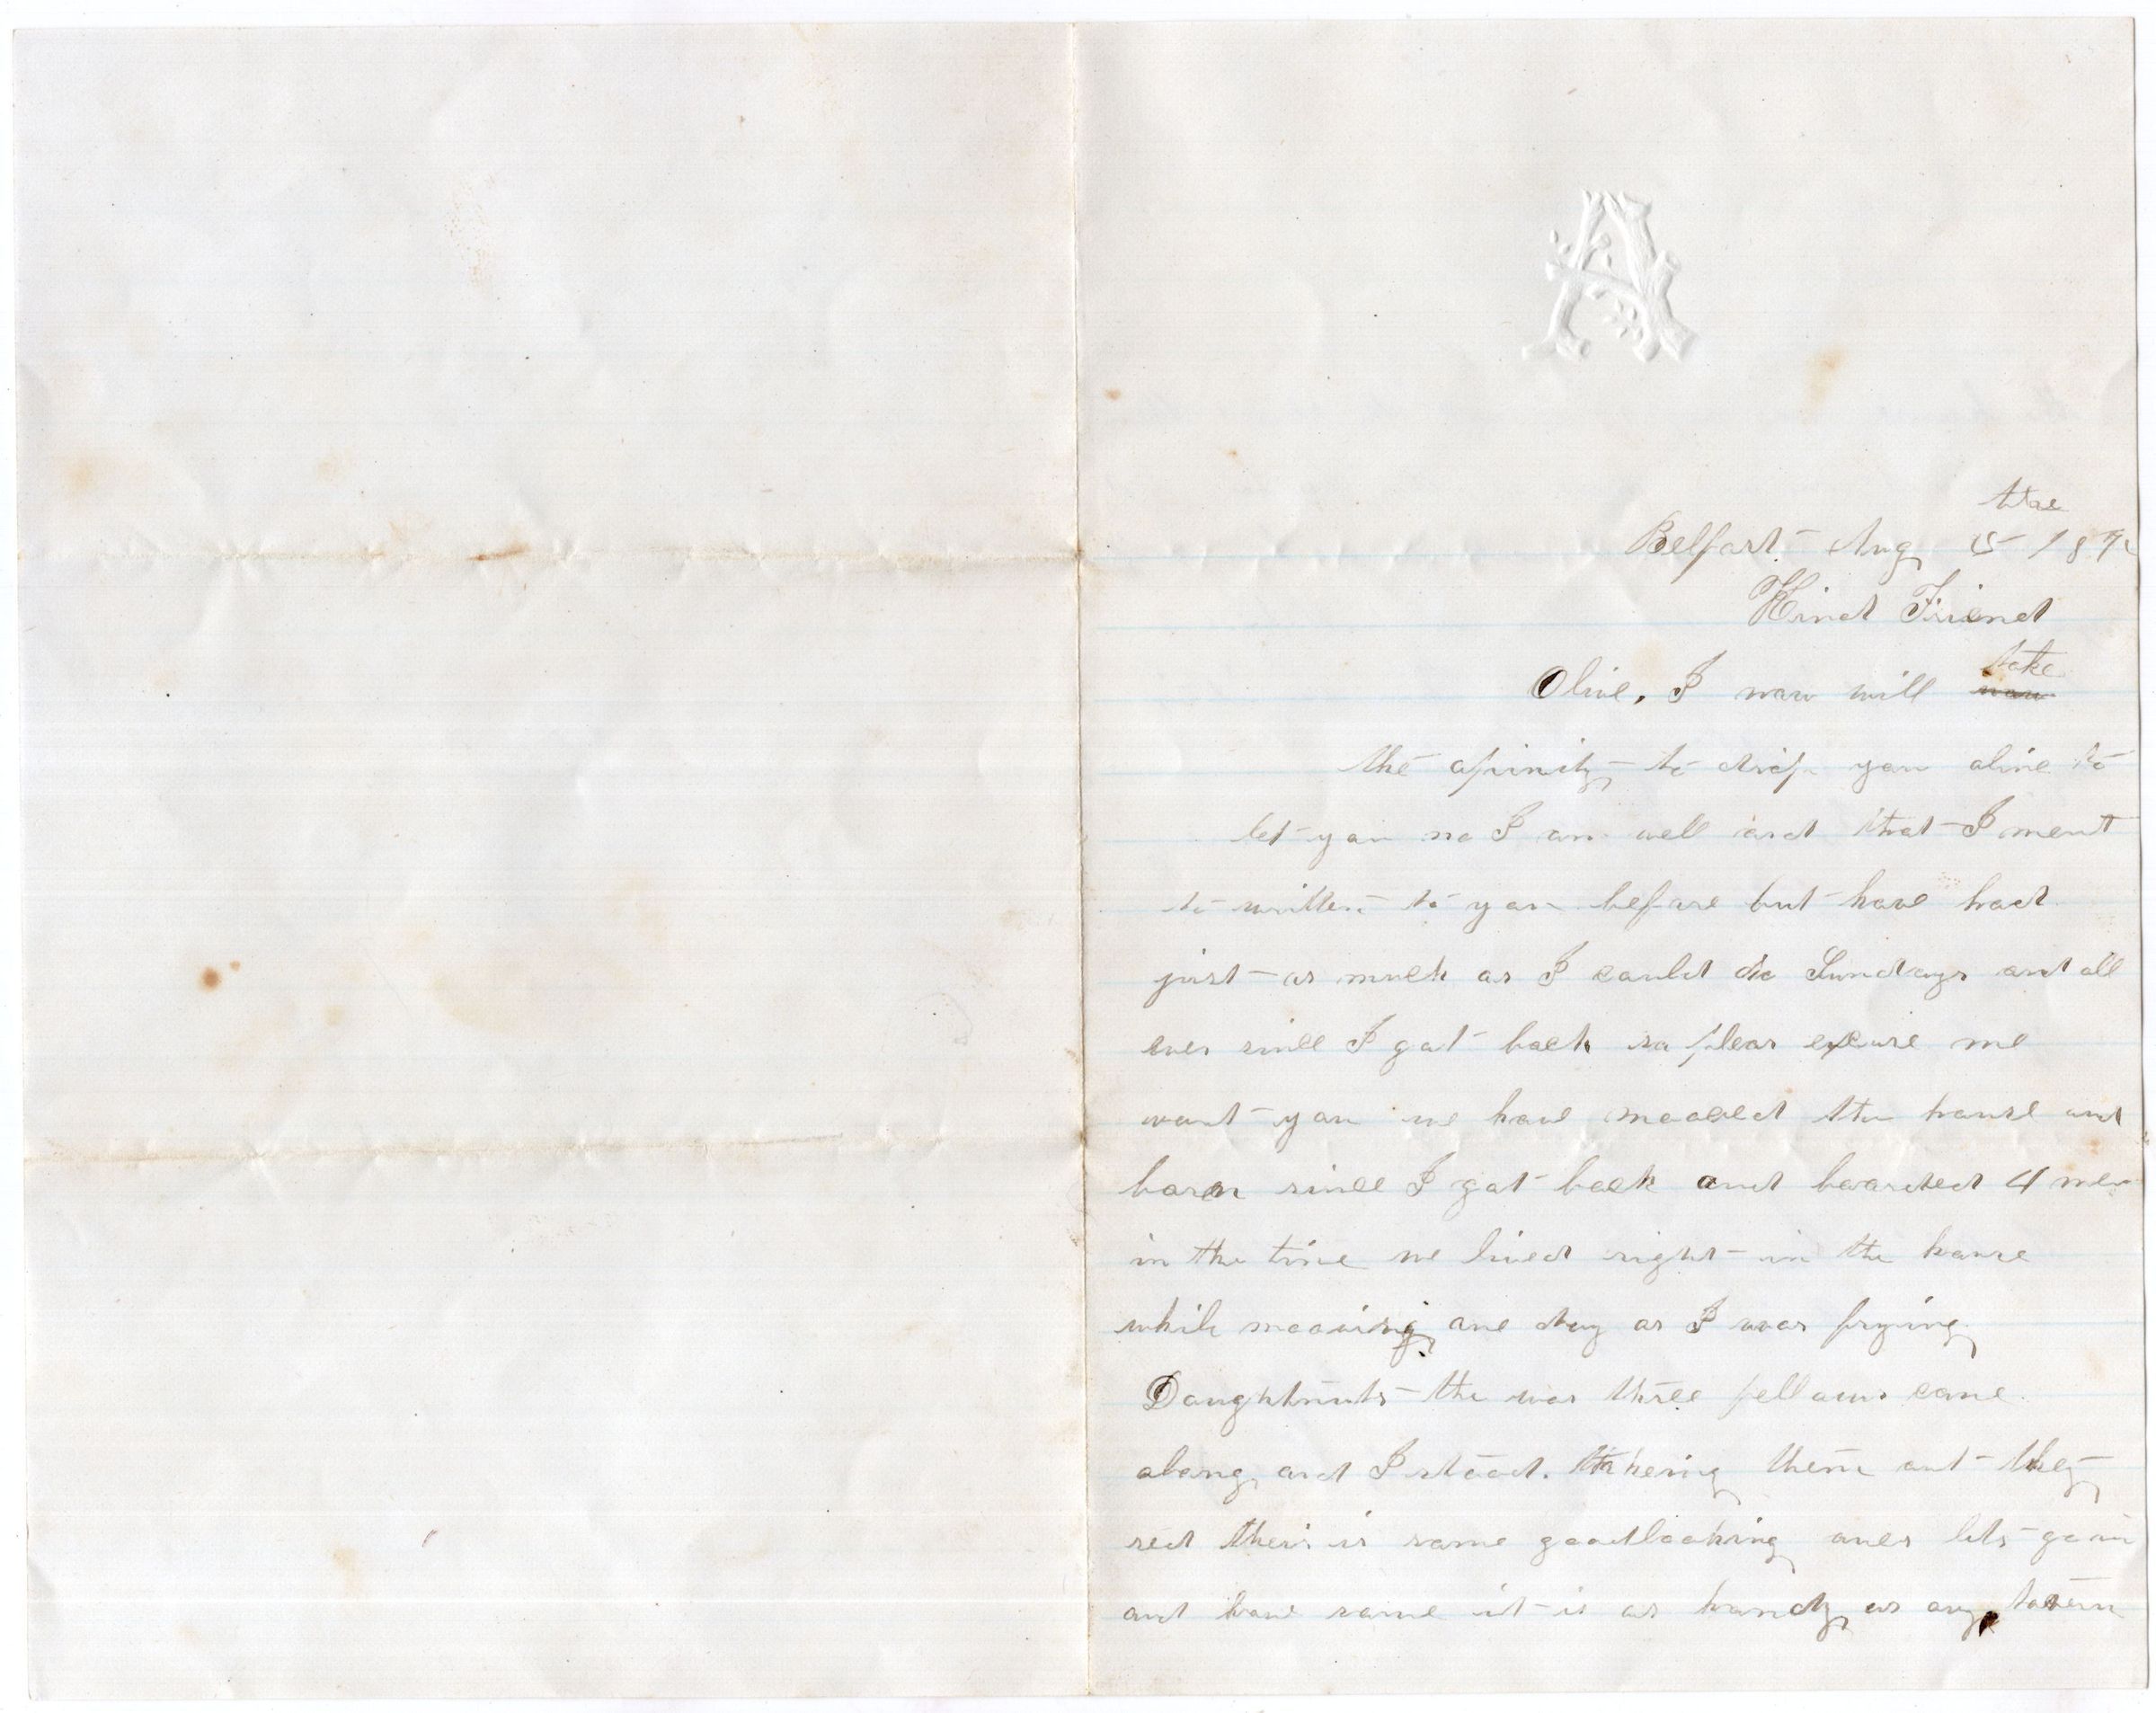 A
the
Belfast Aug 15 187
Kind Friend
take
Olive, I now will now
the opinity to drop you aline to
let you no I am well and that I ment
to written to you before but have had
just as much as I could do Sundays and all
ever since I got back so pleas excuse me
wont you we have mooved the house and
baren since I got back and boarded 4 men
in the time we lived right in the house
while mooving one day as I was frying
Doughtnuts the was three fellows come
along and I stood them out they
sed their is some goodlooking ones lets go in
and have some it is as handy as any tavern